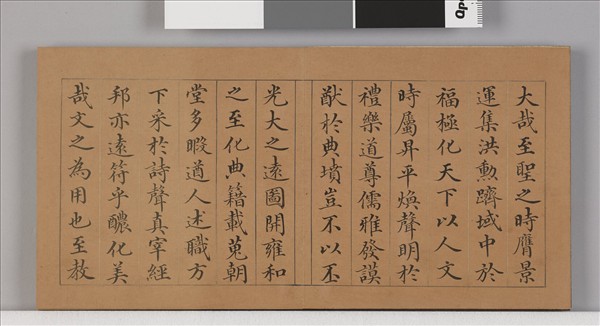 大哉至聖之時膺景
運集洪勲躋域中於
福極化天下以人文
時屬昇平煥聲明於
禮樂道尊儒雅發謨
猷於典墳豈不以丕
光大之遠圖開雍和
之至化典籍載蒐朝
堂多暇遒人述職方
下采於詩聲真宰經
邦亦遠符乎醲化美
哉文之為用也至教